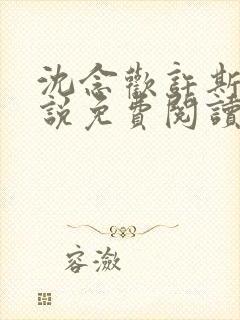 沈念歡許斯
說免費閱讀
容瀲